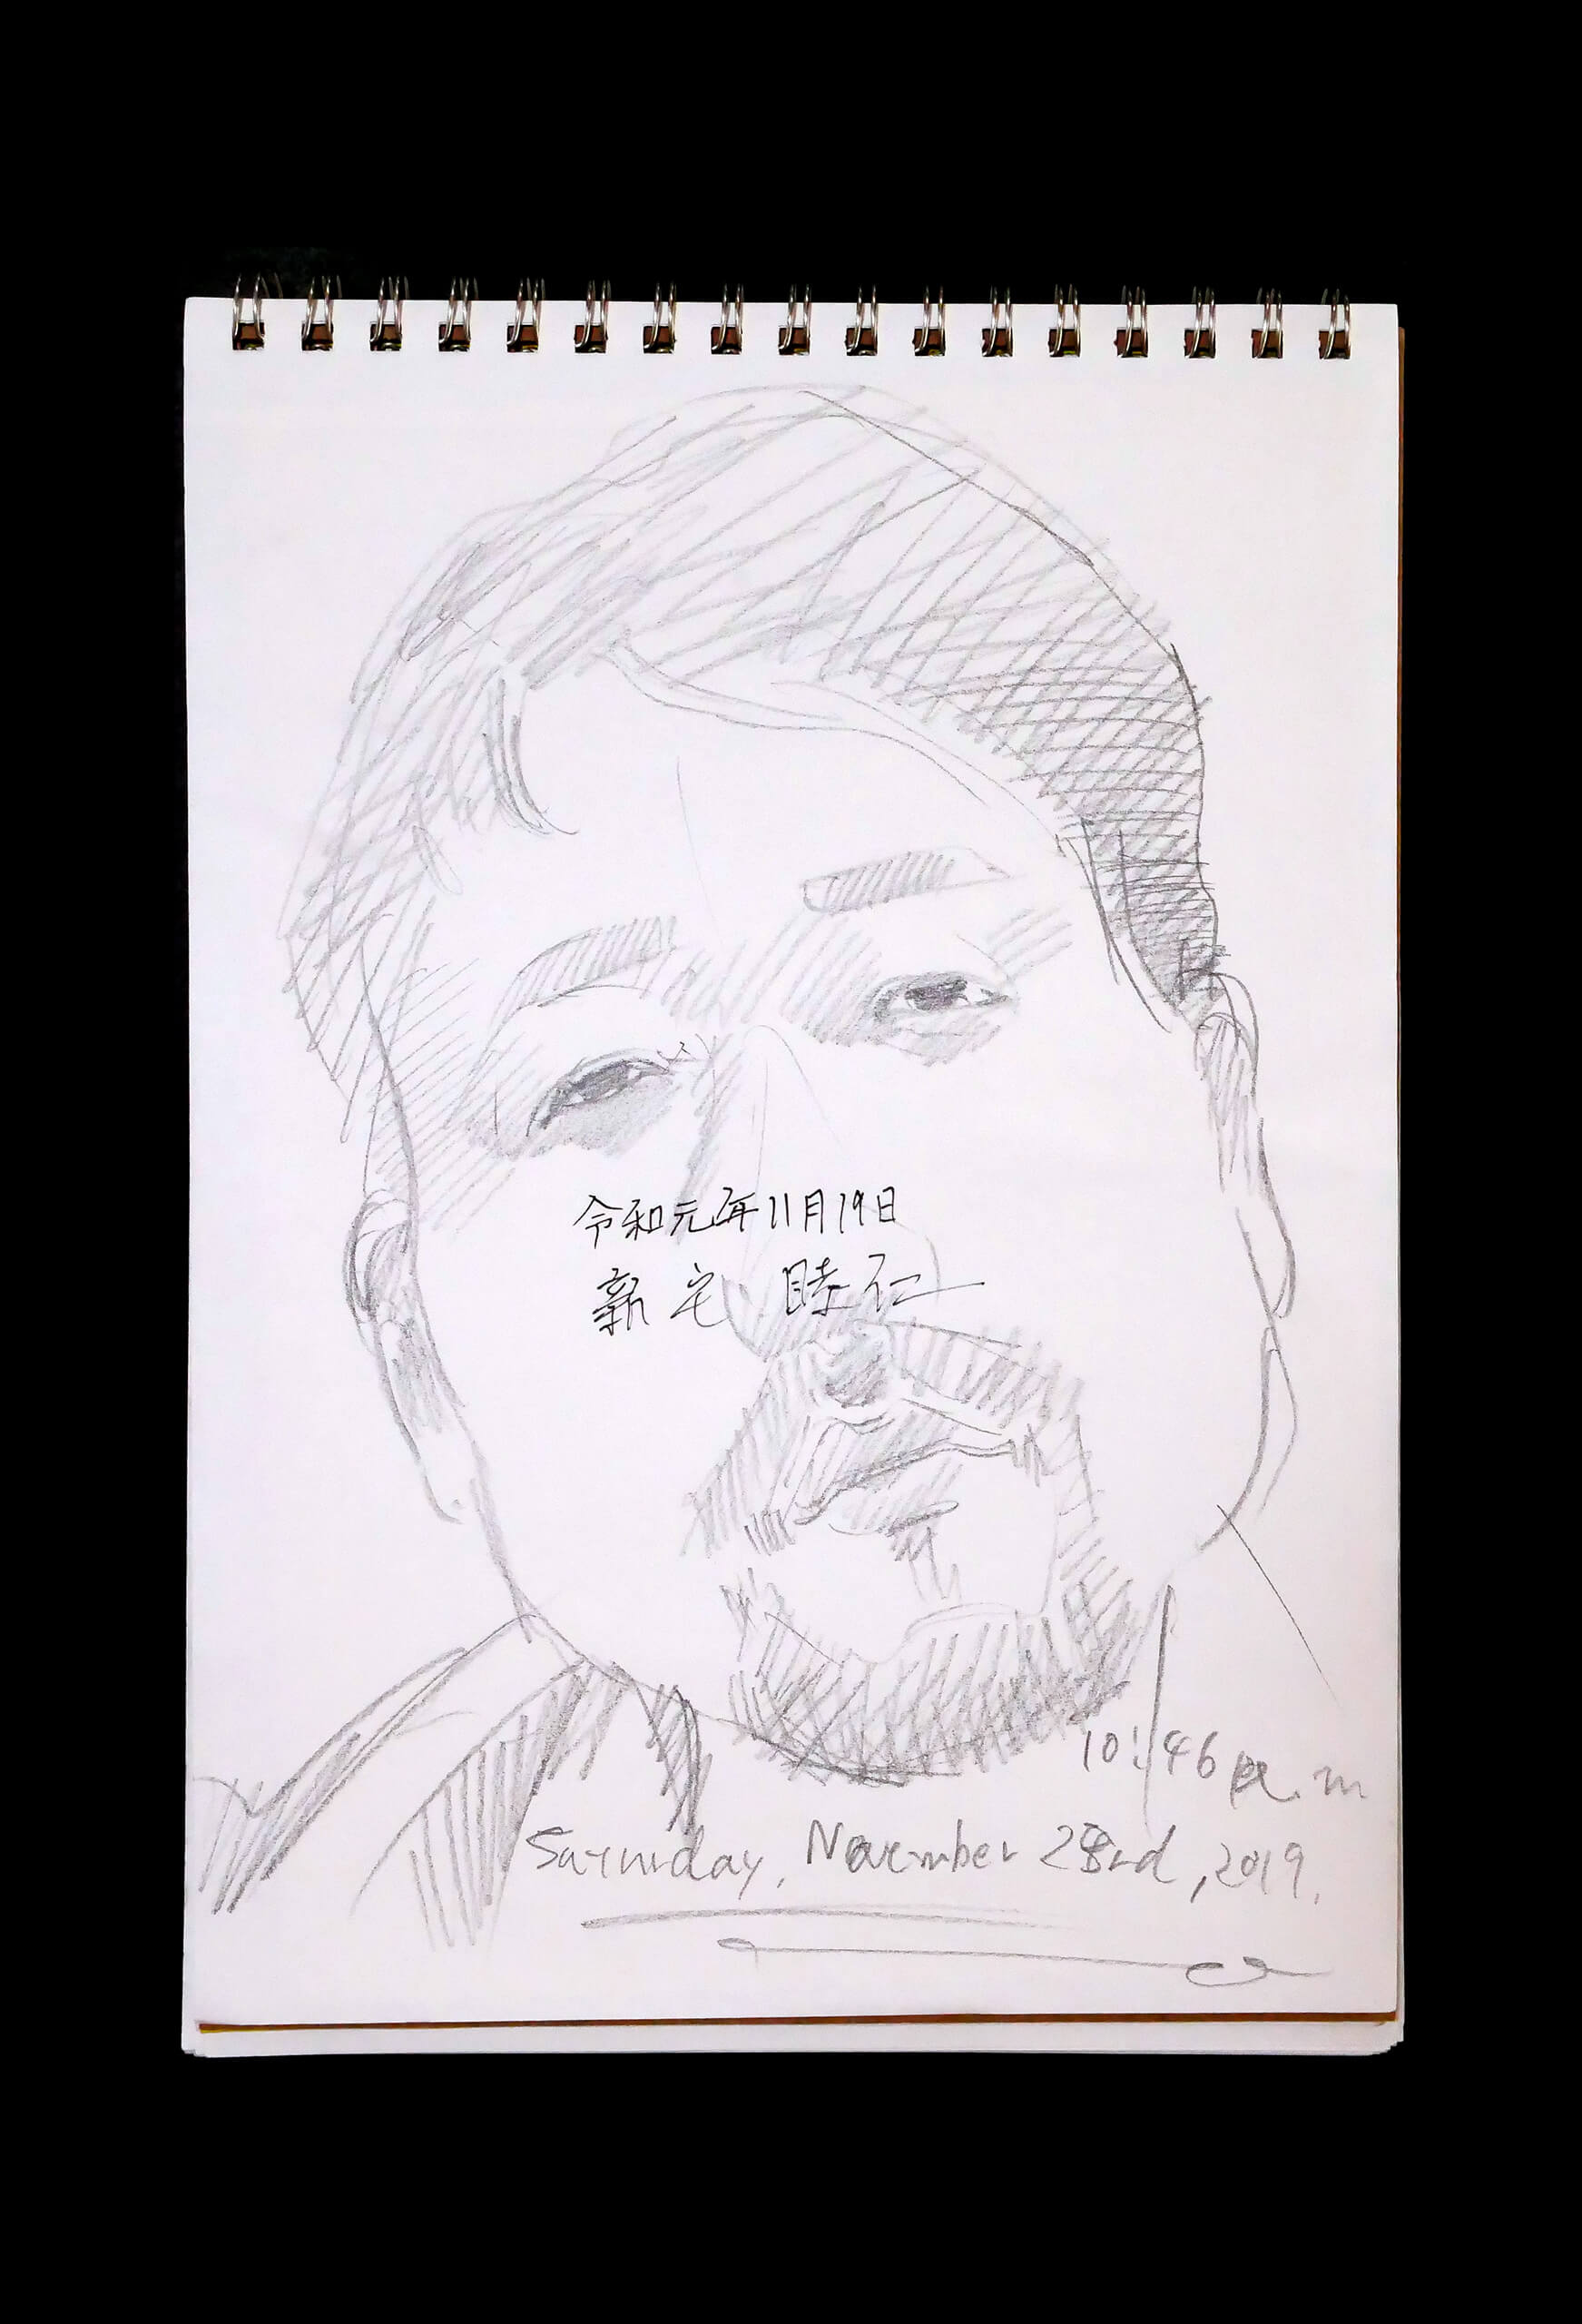 令和元年11月19日
新宅 睦仁
10:46 p.m
Saturday, November 23rd, 2019.